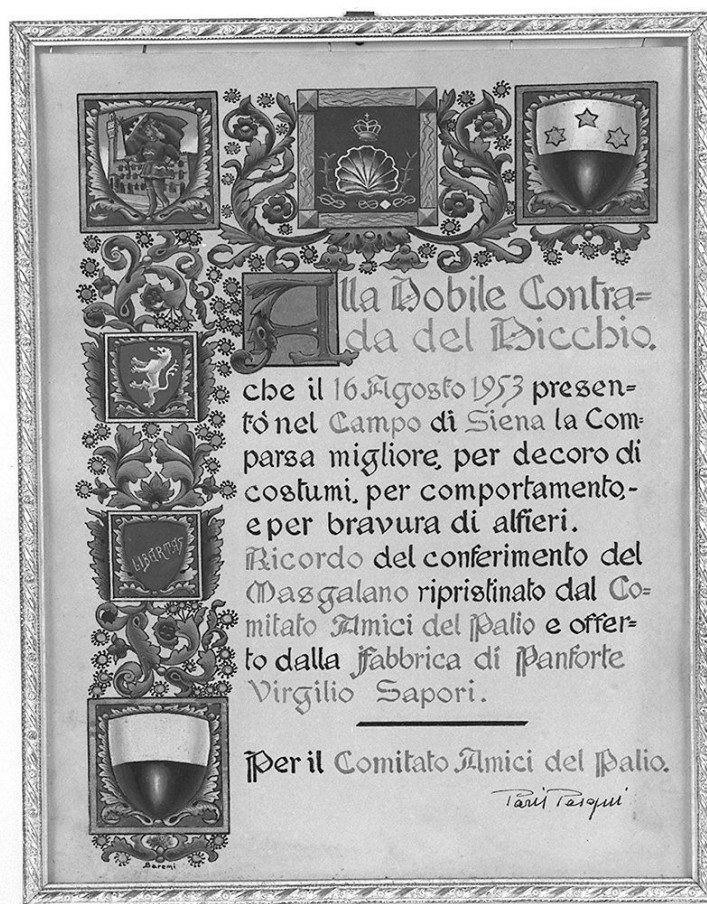 Alla Nobile Contra=
da del Nicchio.
che il 16 Agosto 1953 presen-
tò nel Campo di Siena la Com-
parsa migliore, per decoro di
costumi, per comportamento,-
e per bravura di alfieri.
Ricordo del conferimento del
Masgalano ripristinato dal Co=
mitato Amici del Palio e offer=
to dalla Fabbrica di Panforte
Virgilio Sapori.
Per il Comitato Amici del Palio.
LIBERTAS